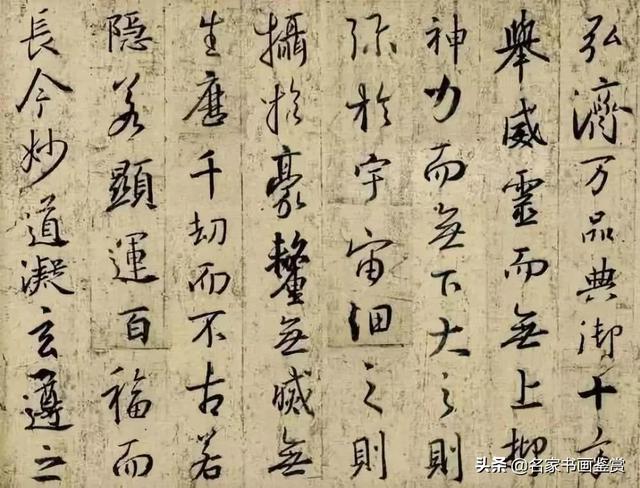 弘濟万品典御十方
舉威靈而無上抑
神力而無下大之則
弥於宇宙細之則
攝於豪釐無滅無
生歷千劫而不古若
隱若顯運百福而
長今妙道凝玄遵之
头条@名家书画鉴赏